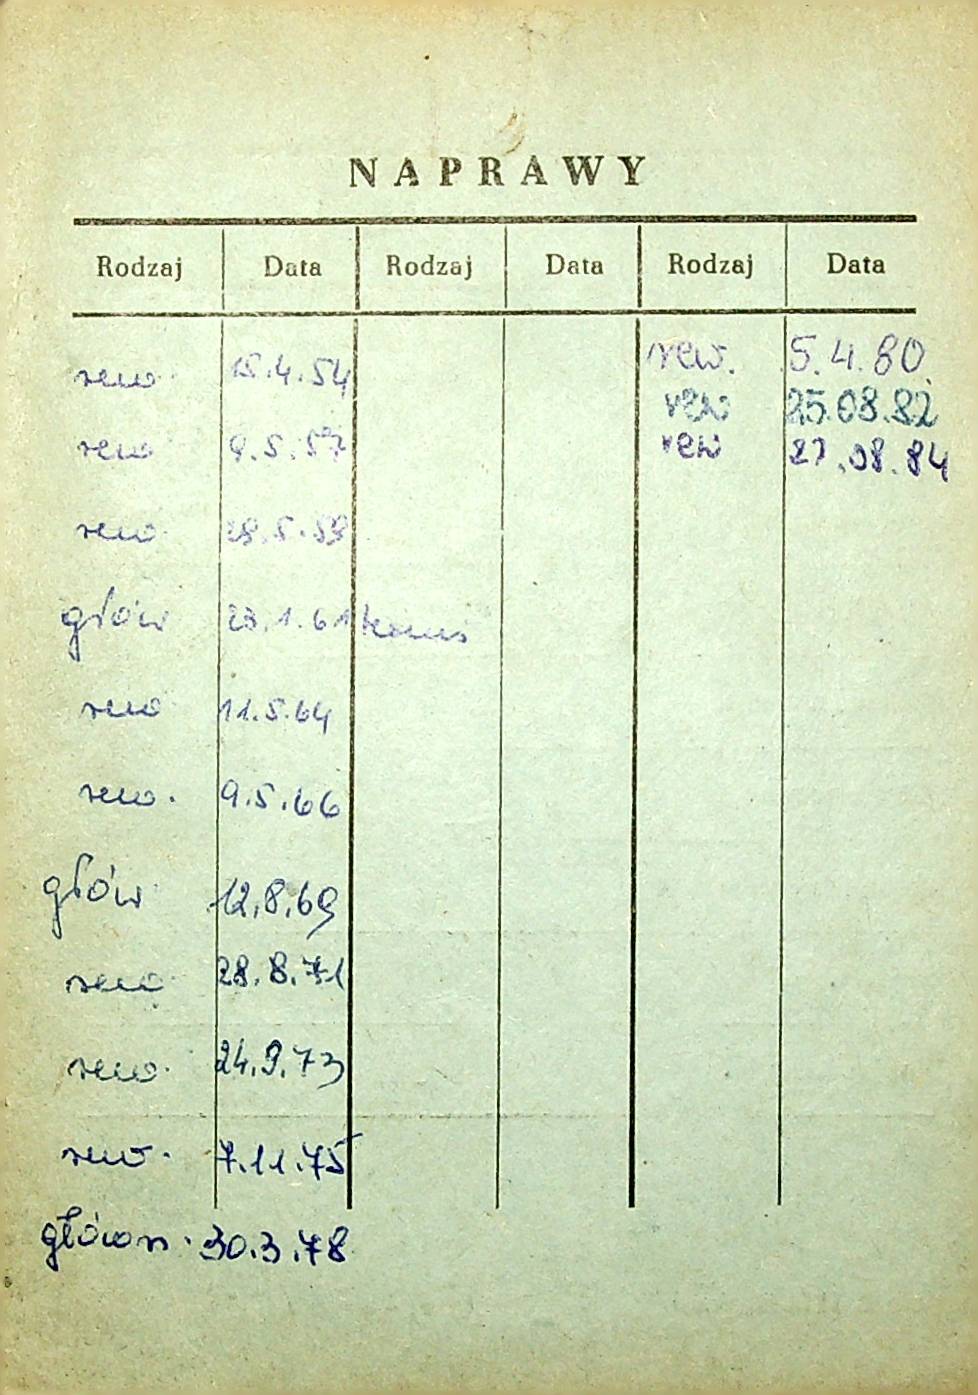 NAPRAWY
Rodzaj Data Rodzaj Data Rodzaj Data
rew. 15.4.54 rew. 5.4.80.
rew 25.08.82
rew 9.5.57 rew 27.08.84
rew 29.5.59
głów 23.1.61
rew 11.5.64
rew. 9.5.66
głów 12.8.69
rew 28.8.71
rew. 24.9.73
rew. 7.11.75
główn. 30.3.78